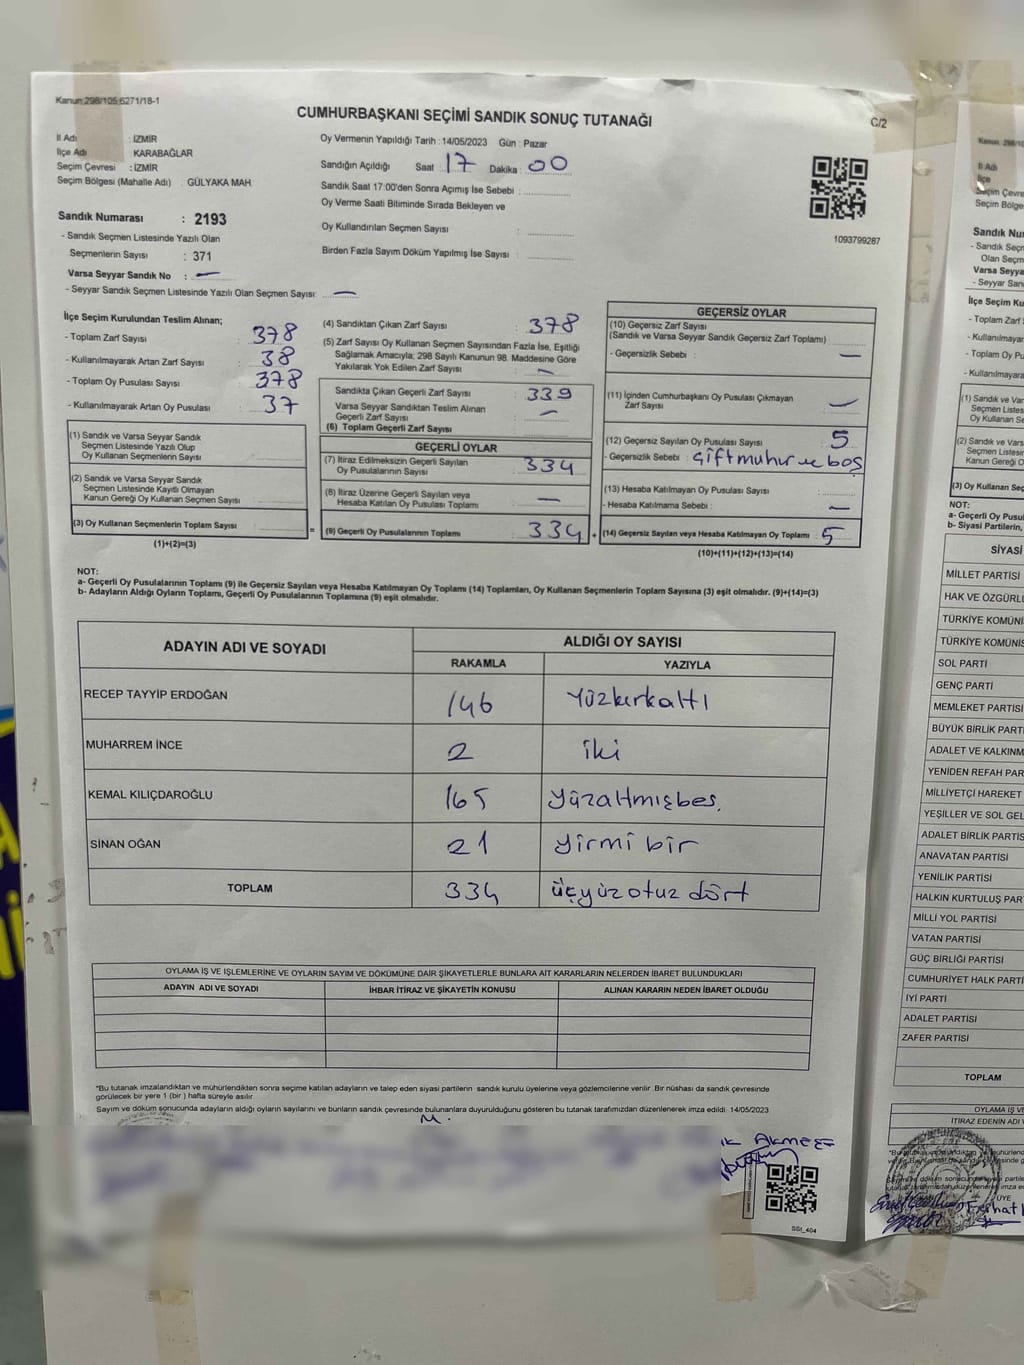 Kanun:298/105;6271/18-1
CUMHURBAŞKANI SEÇİMİ SANDIK SONUÇ TUTANAĞI
C/2
İl Adı : İZMİR
İlçe Adı : KARABAĞLAR
Seçim Çevresi : İZMİR
Seçim Bölgesi (Mahalle Adı) : GÜLYAKA MAH.
Oy Vermenin Yapıldığı Tarih : 14/05/2023 Gün : Pazar
Sandığın Açıldığı Saat : 17 Dakika : 00
Sandık Saat 17:00'den Sonra Açımış İse Sebebi :
Oy Verme Saati Bitiminde Sırada Bekleyen ve
Oy Kullandırılan Seçmen Sayısı :
Birden Fazla Sayım Döküm Yapılmış İse Sayısı :
1093799287
Sandık Numarası : 2193
- Sandık Seçmen Listesinde Yazılı Olan
Seçmenlerin Sayısı : 371
Varsa Seyyar Sandık No : —
- Seyyar Sandık Seçmen Listesinde Yazılı Olan Seçmen Sayısı: —
İlçe Seçim Kurulundan Teslim Alınan;
- Toplam Zarf Sayısı : 378
- Kullanılmayarak Artan Zarf Sayısı : 38
- Toplam Oy Pusulası Sayısı : 378
- Kullanılmayarak Artan Oy Pusulası : 37
(1) Sandık ve Varsa Seyyar Sandık
Seçmen Listesinde Yazılı Olup
Oy Kullanan Seçmenlerin Sayısı :
(2) Sandık ve Varsa Seyyar Sandık
Seçmen Listesinde Kayıtlı Olmayan
Kanun Gereği Oy Kullanan Seçmen Sayısı :
(3) Oy Kullanan Seçmenlerin Toplam Sayısı :
(1)+(2)=(3)
(4) Sandıktan Çıkan Zarf Sayısı : 378
(5) Zarf Sayısı Oy Kullanan Seçmen Sayısından Fazla İse, Eşitliği
Sağlamak Amacıyla; 298 Sayılı Kanunun 98. Maddesine Göre
Yakılarak Yok Edilen Zarf Sayısı : —
Sandıkta Çıkan Geçerli Zarf Sayısı : 339
Varsa Seyyar Sandıktan Teslim Alınan
Geçerli Zarf Sayısı : —
(6) Toplam Geçerli Zarf Sayısı :
GEÇERLİ OYLAR
(7) İtiraz Edilmeksizin Geçerli Sayılan
Oy Pusulalarının Sayısı : 334
(8) İtiraz Üzerine Geçerli Sayılan veya
Hesaba Katılan Oy Pusulaları Toplamı : —
= (9) Geçerli Oy Pusulalarının Toplamı : 334 +
GEÇERSİZ OYLAR
(10) Geçersiz Zarf Sayısı
(Sandık ve Varsa Seyyar Sandık Geçersiz Zarf Toplamı) :
- Geçersizlik Sebebi : —
(11) İçinden Cumhurbaşkanı Oy Pusulası Çıkmayan
Zarf Sayısı : —
(12) Geçersiz Sayılan Oy Pusulası Sayısı : 5
- Geçersizlik Sebebi : Çift muhur ve boş
(13) Hesaba Katılmayan Oy Pusulası Sayısı :
- Hesaba Katılmama Sebebi : —
(14) Geçersiz Sayılan veya Hesaba Katılmayan Oy Toplamı : 5
(10)+(11)+(12)+(13)=(14)
NOT:
a- Geçerli Oy Pusulalarının Toplamı (9) ile Geçersiz Sayılan veya Hesaba Katılmayan Oy Toplamı (14) Toplamları, Oy Kullanan Seçmenlerin Toplam Sayısına (3) eşit olmalıdır. (9)+(14)=(3)
b- Adayların Aldığı Oyların Toplamı, Geçerli Oy Pusulalarının Toplamına (9) eşit olmalıdır.
ADAYIN ADI VE SOYADI ALDIĞI OY SAYISI
RAKAMLA YAZIYLA
RECEP TAYYİP ERDOĞAN 146 Yüzkırkaltı
MUHARREM İNCE 2 iki
KEMAL KILIÇDAROĞLU 165 Yüzaltmışbeş.
SİNAN OĞAN 21 yirmi bir
TOPLAM 334 üçyüzotuz dört
OYLAMA İŞ VE İŞLEMLERİNE VE OYLARIN SAYIM VE DÖKÜMÜNE DAİR ŞİKAYETLERLE BUNLARA AİT KARARLARIN NELERDEN İBARET BULUNDUKLARI
ADAYIN ADI VE SOYADI İHBAR İTİRAZ VE ŞİKAYETİN KONUSU ALINAN KARARIN NEDEN İBARET OLDUĞU
*Bu tutanak imzalandıktan ve mühürlendikten sonra seçime katılan adayların ve talep eden siyasi partilerin sandık kurulu üyelerine veya gözlemcilerine verilir. Bir nüshası da sandık çevresinde
görülecek bir yere 1 (bir) hafta süreyle asılır.
Sayım ve döküm sonucunda adayların aldığı oyların sayılarını ve bunların sandık çevresinde bulunanlara duyurulduğunu gösteren bu tutanak tarafımızdan düzenlenerek imza edildi. 14/05/2023
M.
SSI_404
İl Adı
İlçe
Seçim Çevre
Seçim Bölge
Sandık Nu
- Sandık Seçm
Olan Seçm
Varsa Seyya
- Seyyar San
İlçe Seçim K
- Toplam Zarf
- Kullanılmayar
- Toplam Oy Pu
- Kullanılmayara
(1) Sandık ve Var
Seçmen Listes
Oy Kullanan Se
(2) Sandık ve Varsa
Seçmen Listes
Kanun Gereği O
(3) Oy Kullanan Seç
NOT:
a- Geçerli Oy Pusula
b- Siyasi Partilerin,
SİYASİ
MİLLET PARTİSİ
HAK VE ÖZGÜRL
TÜRKİYE KOMÜNİ
TÜRKİYE KOMÜNİS
SOL PARTİ
GENÇ PARTİ
MEMLEKET PARTİSİ
BÜYÜK BİRLİK PART
ADALET VE KALKINM
YENİDEN REFAH PAR
MİLLİYETÇİ HAREKET
YEŞİLLER VE SOL GEL
ADALET BİRLİK PARTİSİ
ANAVATAN PARTİSİ
YENİLİK PARTİSİ
HALKIN KURTULUŞ PAR
MİLLİ YOL PARTİSİ
VATAN PARTİSİ
GÜÇ BİRLİĞİ PARTİSİ
CUMHURİYET HALK PARTİ
İYİ PARTİ
ADALET PARTİSİ
ZAFER PARTİSİ
TOPLAM
OYLAMA İŞ VE
İTİRAZ EDENİN ADI V
ÜYE